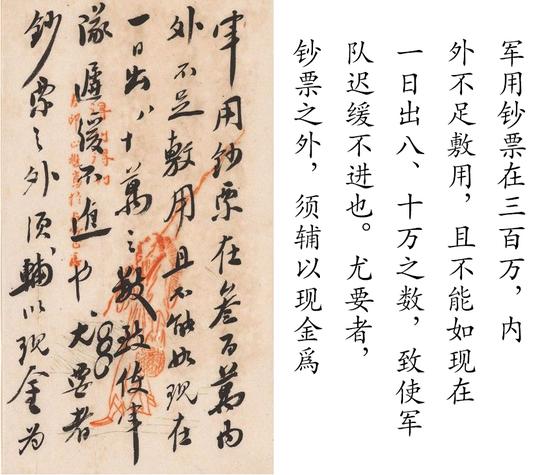 軍用鈔票在叁百萬内
外不足敷用且不能如現在
一日出八十萬之數致使軍
隊遲緩不進也尤要者
鈔票之外須輔以現金為
军用钞票在三百万，内
外不足敷用，且不能如现在
一日出八、十万之数，致使军
队迟缓不进也。尤要者，
钞票之外，须辅以现金爲